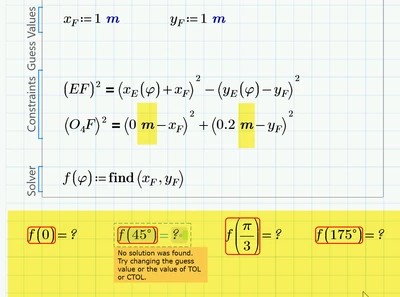 Guess Values
x_F := 1 m    y_F := 1 m
Constraints
(EF)² = (x_E(φ) + x_F)² − (y_E(φ) − y_F)²
(O₄F)² = (0 m − x_F)² + (0.2 m − y_F)²
Solver
f(φ) := find(x_F, y_F)
f(0) = ?    f(45°) = ?    f(π/3) = ?    f(175°) = ?
No solution was found.
Try changing the guess
value or the value of TOL
or CTOL.